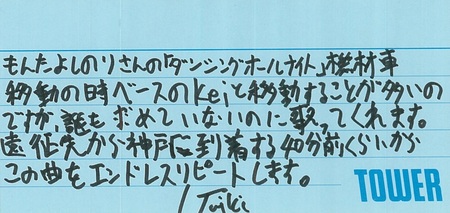 もんたよしのりさんの「ダンシングオールナイト」機材車
移動の時ベースのKeiと移動することが多いの
ですが誰も求めていないのに歌ってくれます。
遠征先から神戸に到着する40分前くらいから
この曲をエンドレスリピートします。
/ Taiki
TOWER